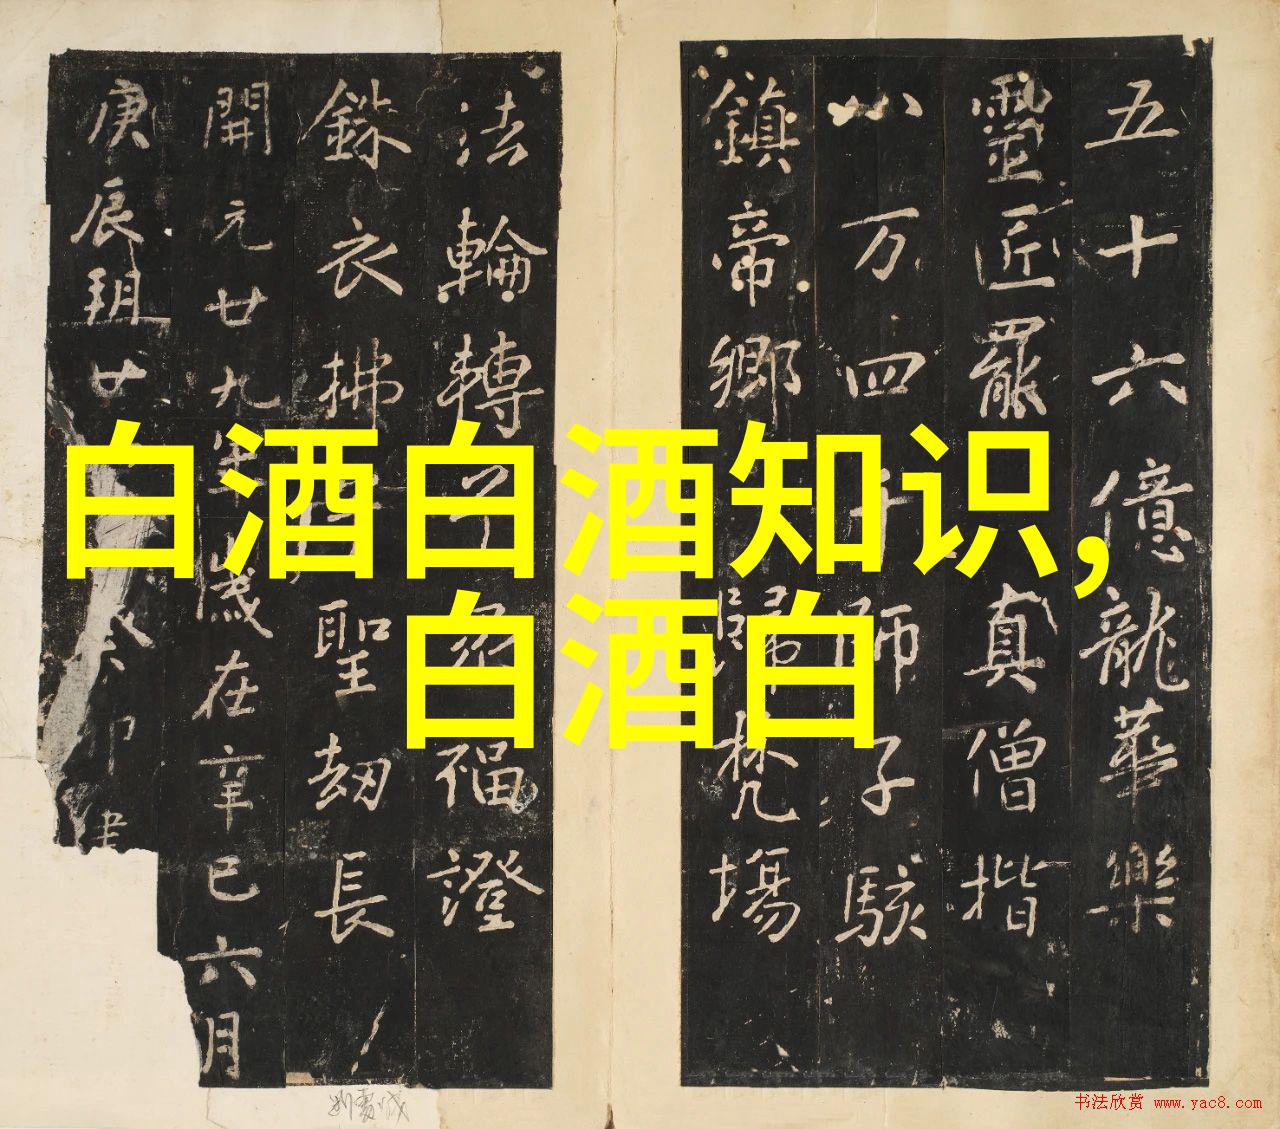 五十六億龍華樂
靈匠罷
真僧揩
八万四千師子駭
鎮帝鄉
歸梵場
法輪轉
福證
銖衣拂
聖劫長
開元廿九年歲在辛巳六月
庚辰朔廿
癸卯建
白酒白酒知识,
白酒白
书法欣赏 www.yac8.com